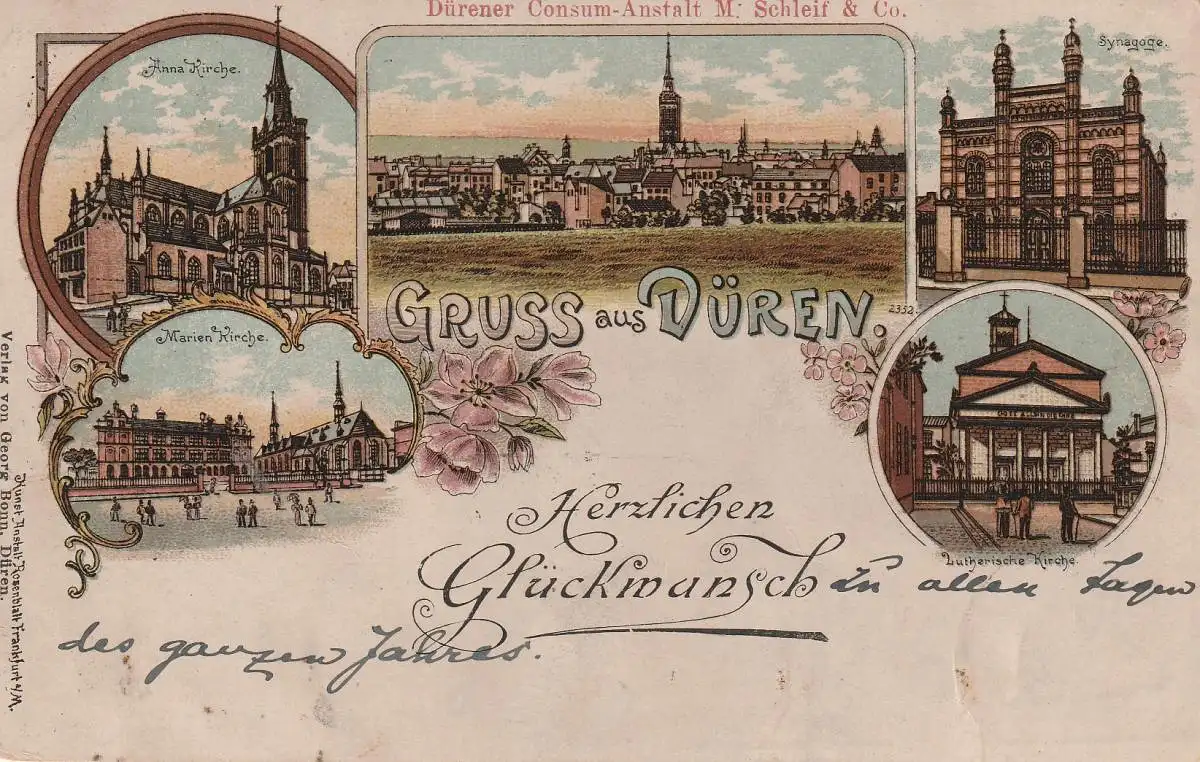 Dürener Consum-Anstalt M. Schleif & Co.
Anna Kirche.
Synagoge.
GRUSS aus DÜREN.
2352.
Marien Kirche.
Lutherische Kirche.
Herzlichen
Glückwunsch zu allen Tagen
des ganzen Jahres.
Verlag von Georg Bonn, Düren.
Kunst-Anstalt Rosenblatt Frankfurt a/M.